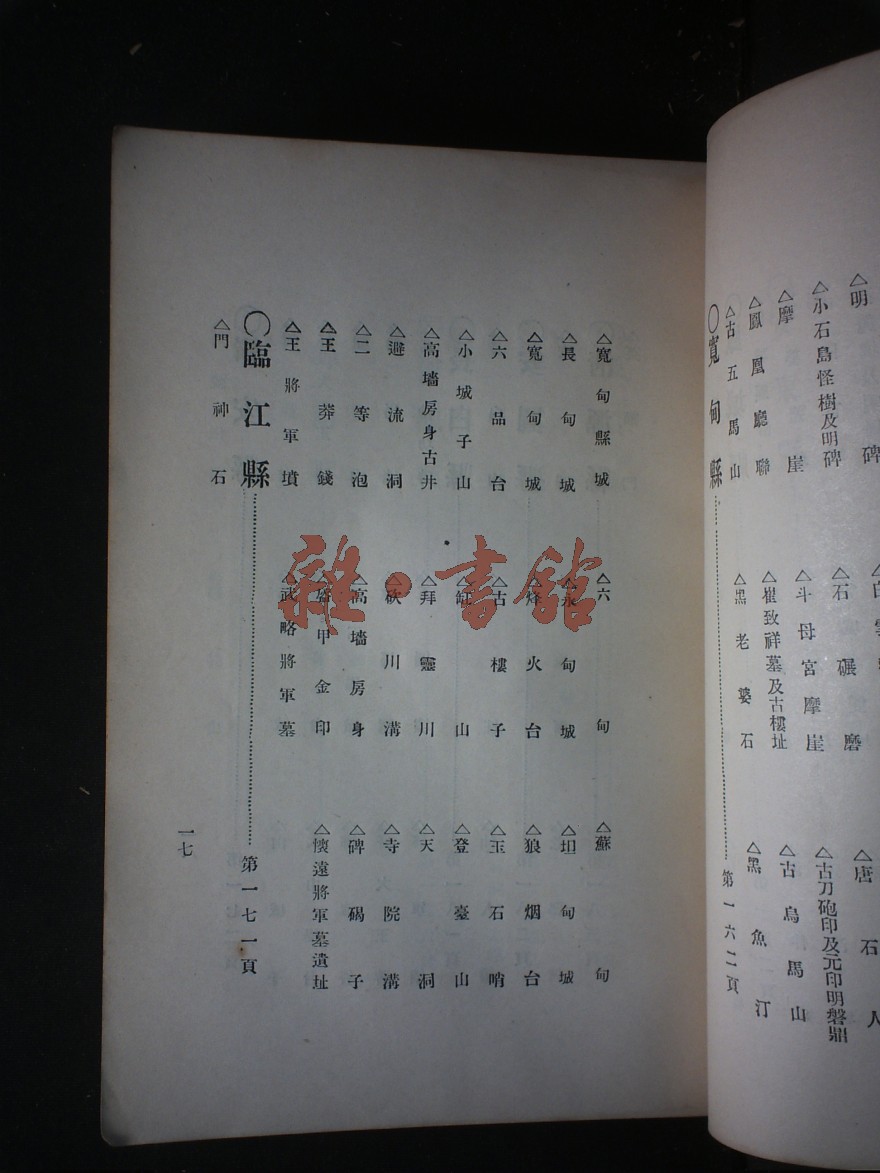 △明碑 △唐石人
△小石島怪樹及明碑 △石碾磨 △古刀砲印及元印明磐鼎
△摩崖 △斗母宮摩崖 △古烏馬山
△鳳凰廳聯 △崔致祥墓及古樓址 △黑魚汀
△古五馬山 △黑老婆石
○寬甸縣……第一六二頁
△寬甸縣城 △六甸 △蘇甸
△長甸城 △永甸城 △坦甸城
△寬甸城 △烽火台 △狼烟台
△六品台 △古樓子 △玉石哨
△小城子山 △缸山 △登臺山
△高墻房身古井 △拜靈川 △天洞
△避流洞 △砍川溝 △寺院溝
△二等泡 △高墻房身 △碑碣子
△王莽錢 甲金印 △懷遠將軍墓遺址
△王將軍墳 △武略將軍墓
○臨江縣……第一七一頁
△門神石
一七
雜·書館